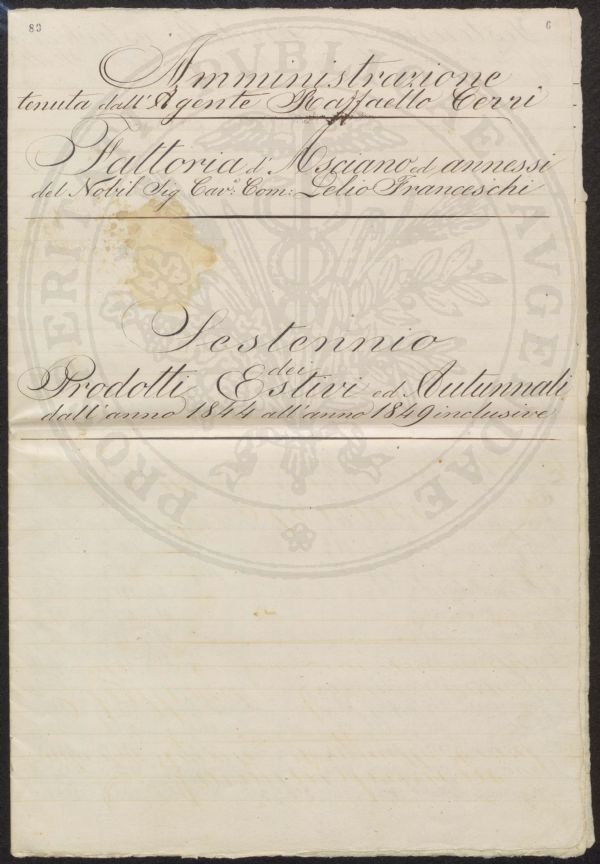 83
6
Amministrazione
tenuta dall'Agente Raffaello Cerri
Fattoria d'Asciano ed annessi
del Nobil Sig Cav.e Com: Lelio Franceschi
Sestennio
dei
Prodotti Estivi ed Autunnali
dall'anno 1844 all'anno 1849 inclusive
PRO VERITATE REIPUBLICAE AVGENDAE